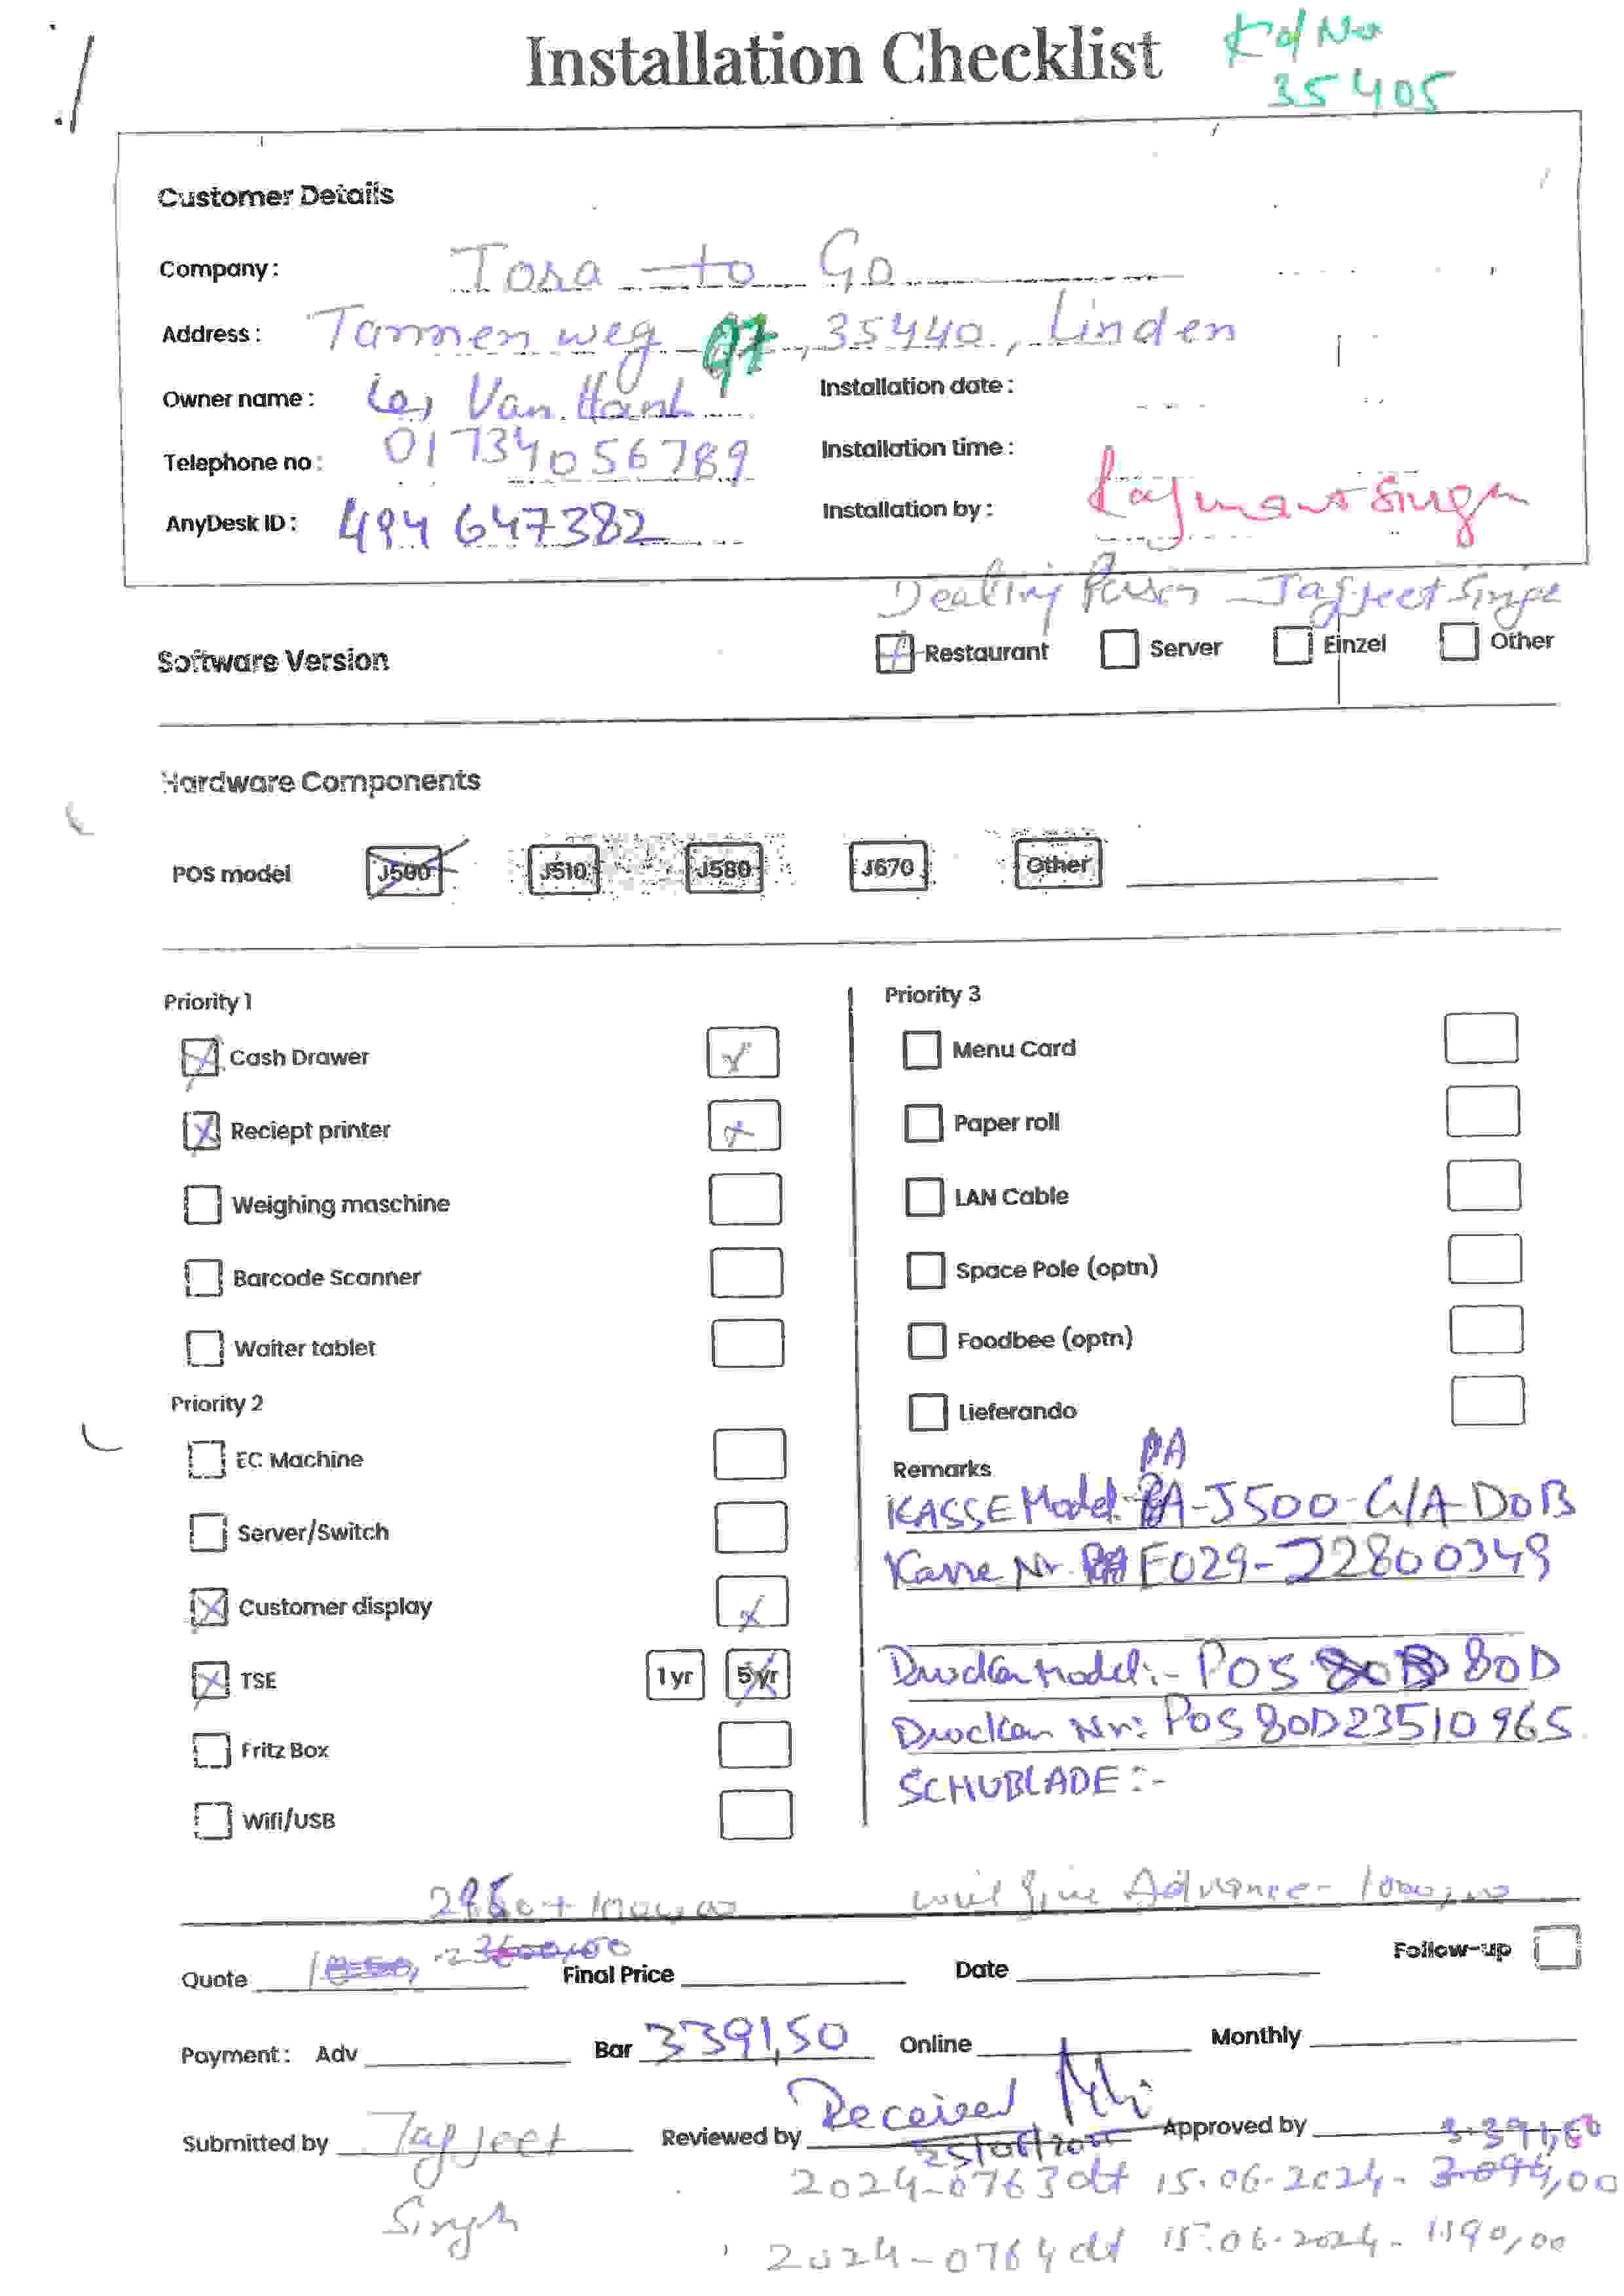 Installation Checklist
Kd No
35405
Customer Details
Company: Tosa to Go
Address: Tannenweg 97, 35440, Linden
Owner name: Le, Van Hanh
Installation date:
Telephone no: 01734056789
Installation time:
AnyDesk ID: 494 647382
Installation by: Rajmant Singh
Dealing Person - Jagjeet Singh
Software Version
Restaurant
Server
Einzel
Other
Hardware Components
POS model
J500
J510
J580
J670
Other
Priority 1
Cash Drawer
Reciept printer
Weighing maschine
Barcode Scanner
Waiter tablet
Priority 2
EC Machine
Server/Switch
Customer display
TSE
1 yr
5 yr
Fritz Box
Wifi/USB
Priority 3
Menu Card
Paper roll
LAN Cable
Space Pole (optn)
Foodbee (optn)
Lieferando
Remarks
PA
KASSE Model:- A-J500-G/A-DOB
Kasse Nr. F029-J2800349
Drucker Model:- POS 80D
Drucker Nr: POS80D23510965
SCHUBLADE :-
+ 1000,00
will give Advance - 1000,00
Quote
Final Price
Date
Follow-up
Payment: Adv
Bar 3391,50
Online
Monthly
Submitted by Jagjeet Singh
Reviewed by Received
Approved by
3.391,50
2024-0763 dt 15.06.2024 - 3.094,00
2024-0764 dt 15.06.2024 - 1190,00